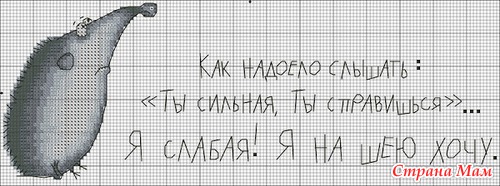 Как надоело слышать:
«Ты сильная, Ты справишься»...
Я слабая! Я на шею хочу.
Страна Мам